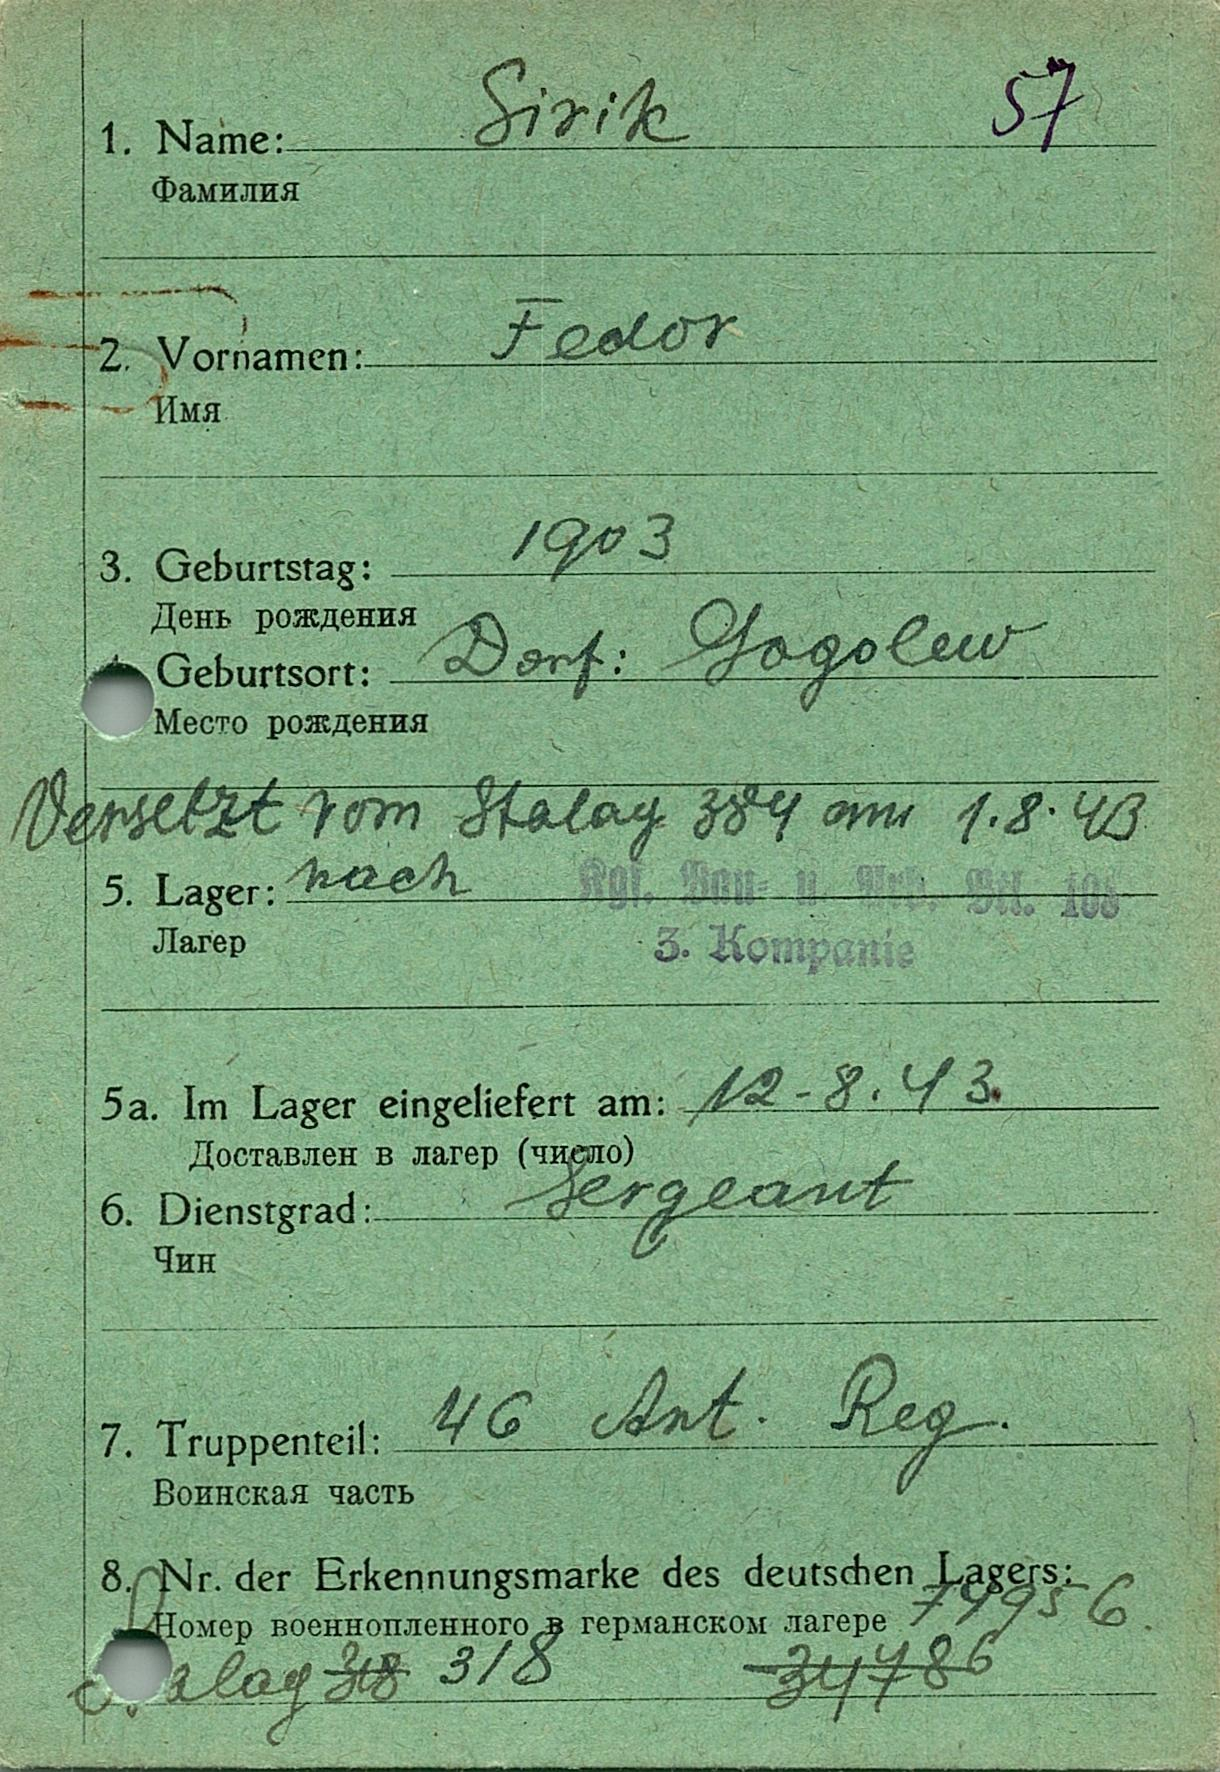 Sirik 57
1. Name:
Фамилия
Fedor
2. Vornamen:
Имя
1903
3. Geburtstag:
День рождения
Geburtsort: Dorf: Gogolew
Место рождения
Versetzt vom Stalag 384 am 1.8.43
5. Lager: nach Kgf. Bau- u. Arb. Btl. 108
Лагер
3. Kompanie
5a. Im Lager eingeliefert am: 12-8.43.
Доставлен в лагер (число)
6. Dienstgrad: Sergeant
Чин
7. Truppenteil: 46 Art. Reg.
Воинская часть
8. Nr. der Erkennungsmarke des deutschen Lagers:
Номер военнопленного в германском лагере 74956
alag 318 318 34786